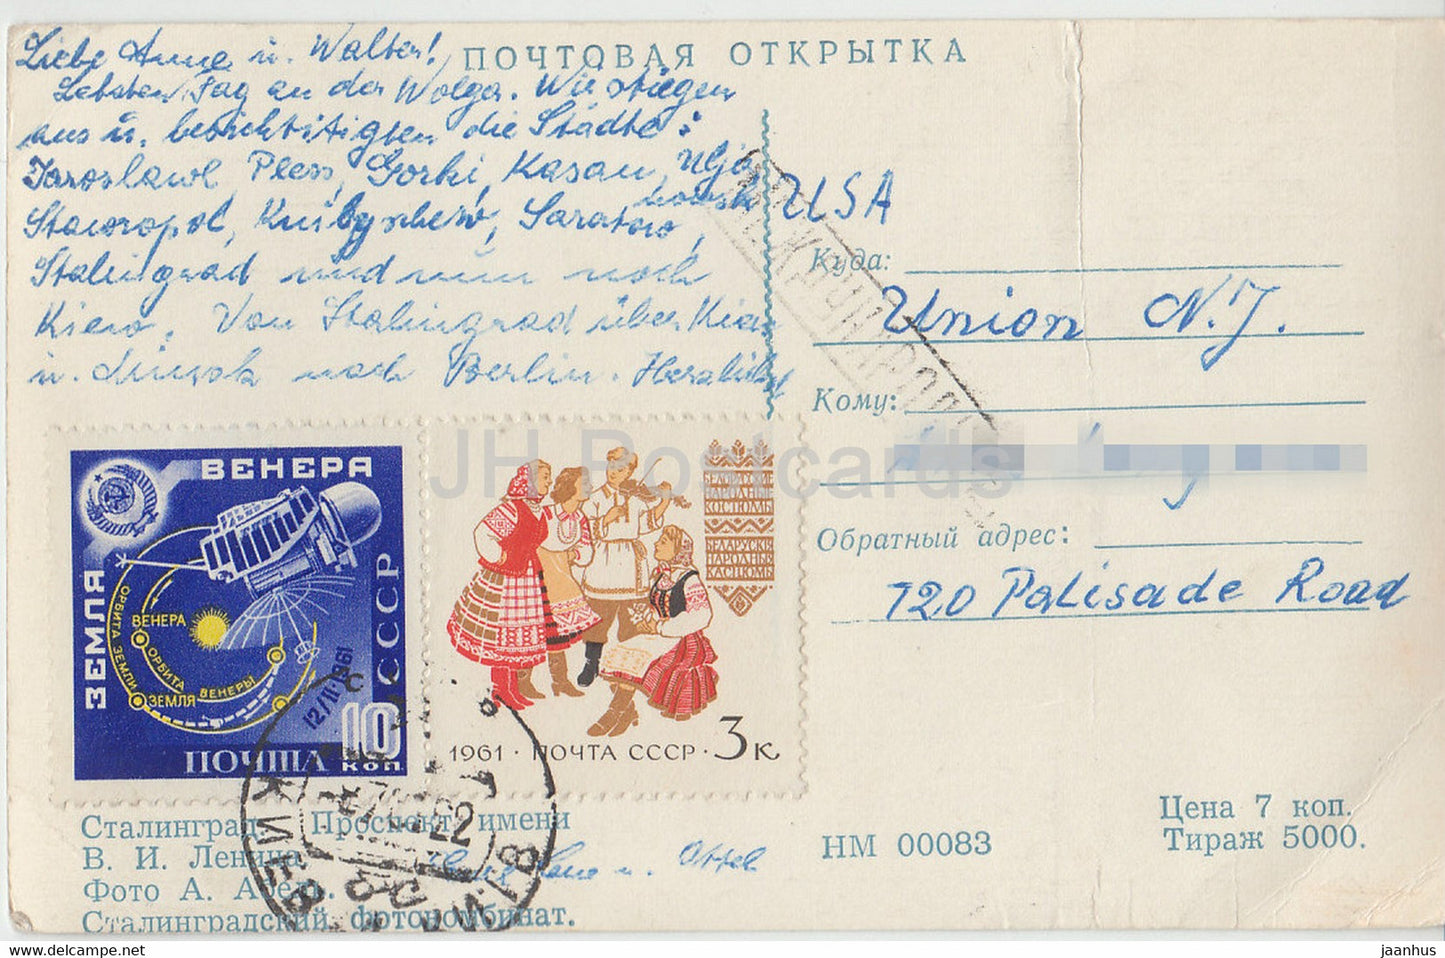 ПОЧТОВАЯ ОТКРЫТКА
Liebe Anne u. Walter!
Letzten Tag an der Wolga. Wir stiegen
aus u. besichtitigten die Städte:
Jaroslawl, Pless, Gorki, Kasan, Uljanowsk
Stawropol, Kuibyschew, Saratow,
Stalingrad und nun noch
Kiew. Von Stalingrad über Kiew
u. Minsk nach Berlin. Herzlichst
USA
Куда:
Union N.J.
Кому:
Обратный адрес:
720 Palisade Road
МЕЖДУНАРОДНОЕ
JH Postcards
ВЕНЕРА
ЗЕМЛЯ
СССР
ОРБИТА ЗЕМЛИ
ВЕНЕРА
ОРБИТА ВЕНЕРЫ
ЗЕМЛЯ
12/II-1961
10
КОП
ПОЧТА
БЕЛОРУССКИЕ
НАРОДНЫЕ
КОСТЮМЫ
БЕЛАРУСКІЯ
НАРОДНЫЯ
КАСЦЮМЫ
1961 · ПОЧТА СССР · 3к
КИЕВ
КИЇВ
Сталинград. Проспект имени
В. И. Ленина.
Фото А. Абель.
Сталинградский фотокомбинат.
u.
НМ 00083
Цена 7 коп.
Тираж 5000.
www.delcampe.net
jaanhus